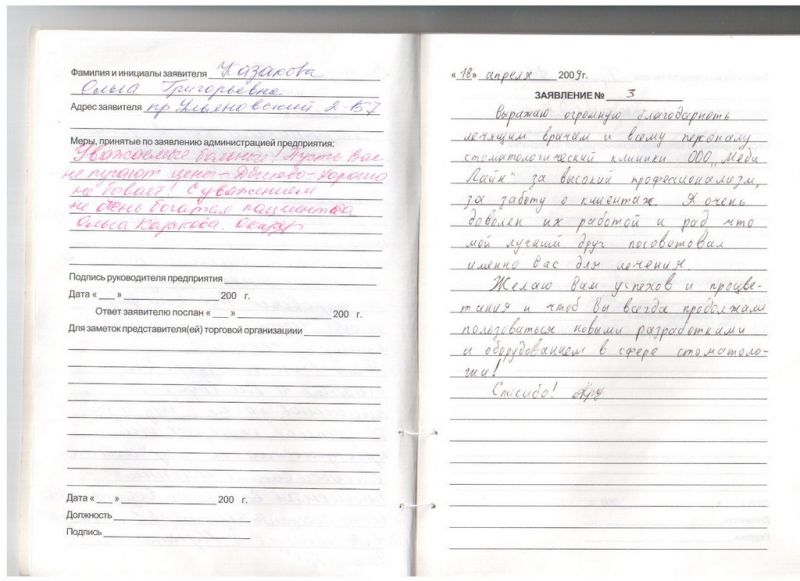 Фамилия и инициалы заявителя Казакова
Ольга Григорьевна
Адрес заявителя пр Ульяновский 2-157
Меры, принятые по заявлению администрацией предприятия:
Уважаемые больные! Пусть Вас
не пугают цены - Дёшево-хорошо
не бывает! С уважением
не очень богатая пациентка
Ольга
Подпись руководителя предприятия
Дата « » 200 г.
Ответ заявителю послан « » 200 г.
Для заметок представителя(ей) торговой организациии
Дата « » 200 г.
Должность
Подпись
«18» апреля 2009г.
ЗАЯВЛЕНИЕ № 3
Выражаю огромную благодарность
лечащим врачам и всему персоналу
стоматологический клиники ООО „Меди
Лайн“ за высокий профессионализм,
за заботу о клиентах. Я очень
доволен их работой и рад что
мой лучший друг посоветовал
именно вас для лечения.
Желаю Вам успехов и процве-
тания и чтоб Вы всегда продолжали
пользоваться новыми разработками
и оборудованием в сфере стоматоло-
гии!
Спасибо!